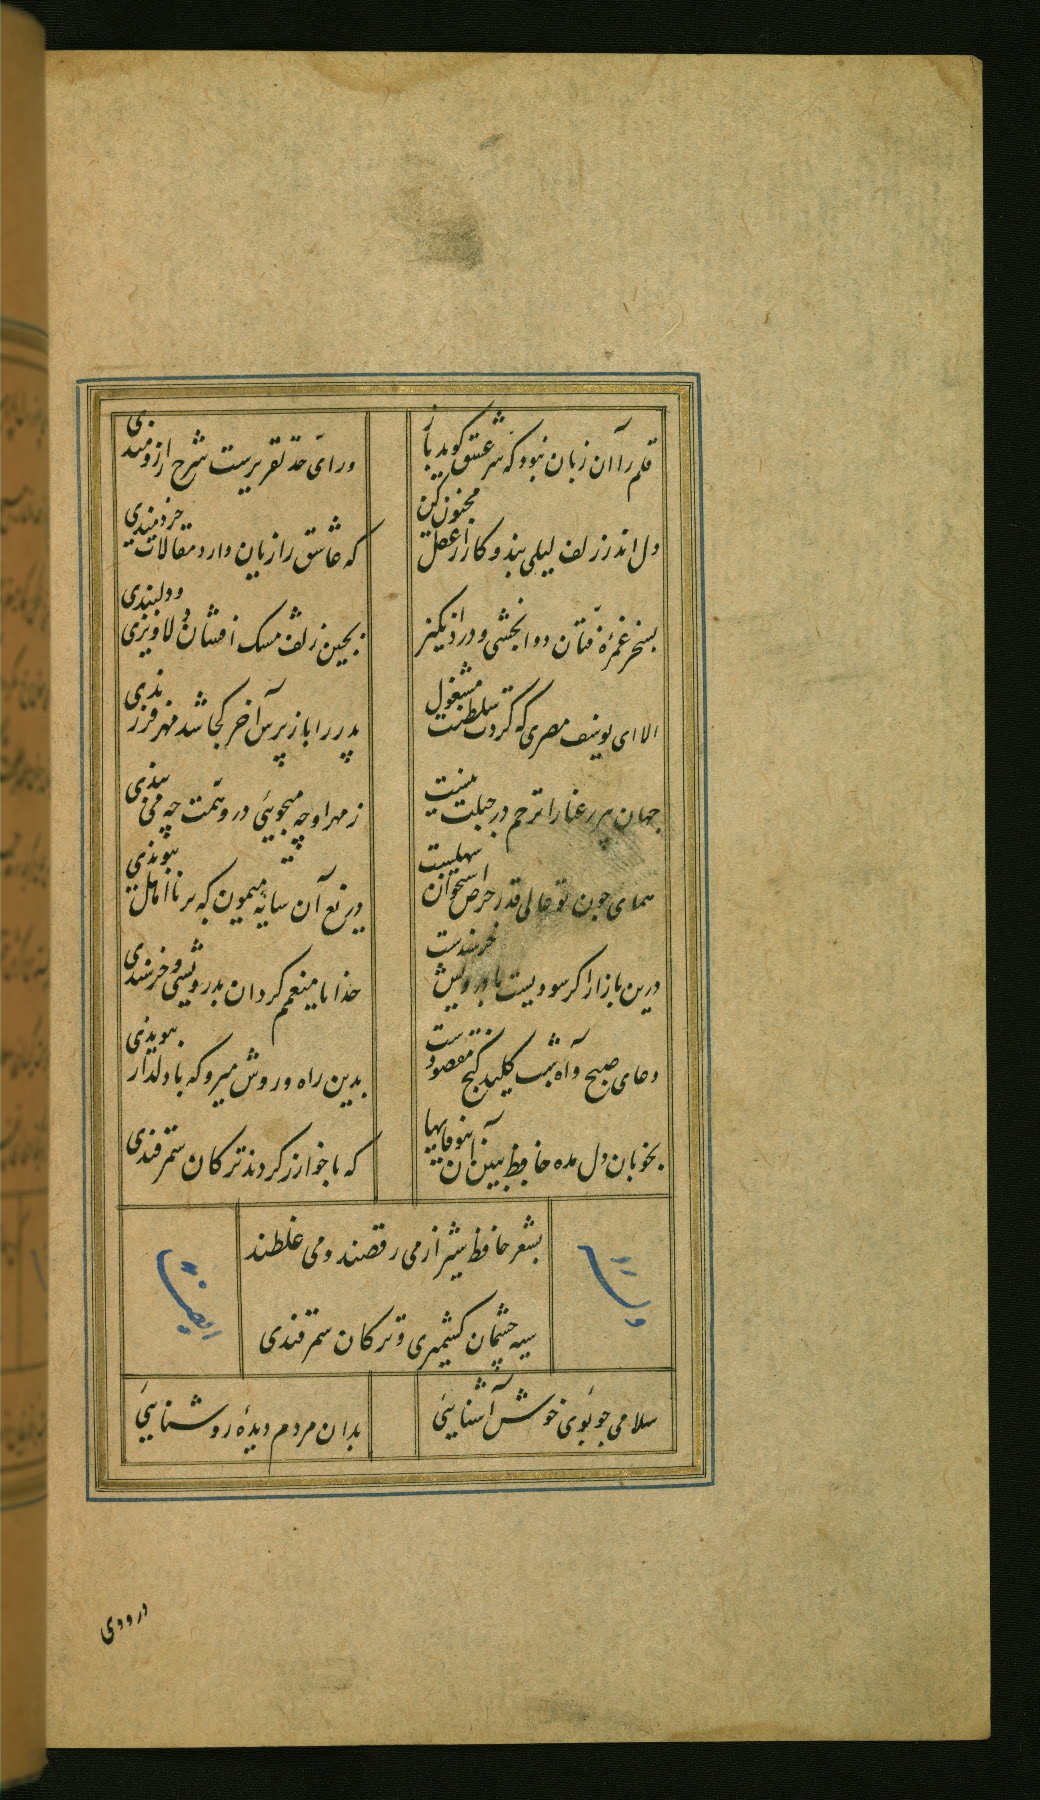 قلم را آن زبان نبود که سر عشق کوید باز
ورای حد تقریرست شرح ارزومندی
دل اندر زلف لیلی بند و کار از عقل مجنون کن
که عاشق را زیان دارد مقالات خردمندی
بسحر غمزهٔ فتان دوا بخشی و درد انگیز
بچین زلف مسک افشان دلاویزی و دلبندی
الا ای یوسف مصری که کردت سلطنت مشغول
پدر را باز پرس آخر کجا شد مهر فرزندی
جهان پیر رعنا را ترحم در جبلت نیست
ز مهر او چه میجویی در و همت چه می بندی
همای چون تو عالی قدر حرص استخوان
دریغ آن سایهٔ میمون که بر نااهل
درین بازار اکر سودیست با درویش خرسندست
خدایا منعمم کردان بدرویشی و خرسندی
دعای صبح و آه شب کلید کنج مقصودست
بدین راه و روش میرو که با دلدار پیوندی
بخوبان دل مده حافظ ببین آن بیوفاییها
که با خوارزم کردند ترکان سمرقندی
بشعر حافظ شیراز می رقصند و می غلطند
سیه چشمان کشمیری و ترکان سمرقندی
وله
ایضا
سلامی جو بوی خوش آشنایی
بدان مردم دیدهٔ روشنایی
درودی